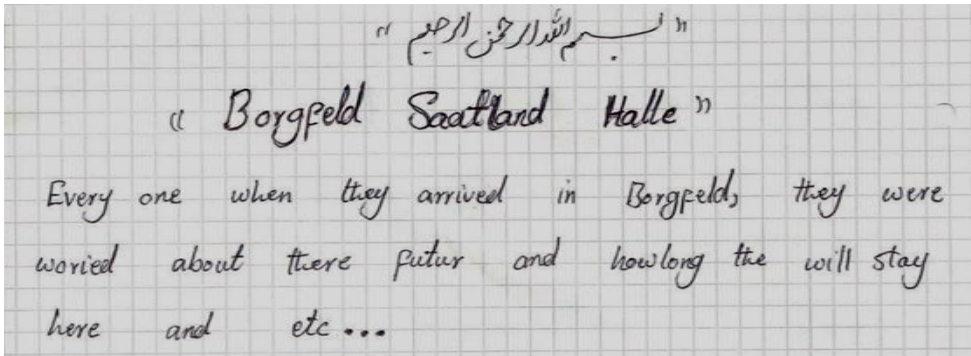 "بسم الله الرحمن الرحیم"
« Borgfeld Saatland Halle »
Every one when they arrived in Borgfeld, they were
woried about there futur and howlong the will stay
here and etc...